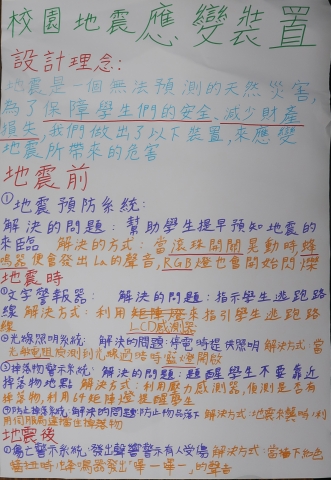 校園地震應變裝置
設計理念:
地震是一個無法預測的天然災害,
為了保障學生們的安全、減少財產
損失,我們做出了以下裝置,來應變
地震所帶來的危害
地震前
①地震預防系統:
解決的問題:幫助學生提早預知地震的
來臨 解決的方式:當滾珠開關晃動時蜂
鳴器便會發出La的聲音,RGB燈也會開始閃爍
地震時
①文字警報器: 解決的問題:指示學生逃跑路
線 解決方式:利用矩陣燈來指引學生逃跑路線
LCD感測器
②光線照明系統: 解決的問題:停電時提供照明 解決方式:當
光敏電阻偵測到光線過暗時藍燈開啟
③掉落物警示系統:解決的問題:提醒學生不要靠近
掉落物地點 解決方式:利用壓力感測器,偵測是否有
掉落物,利用矩陣燈提醒學生
④防止掉落系統:解決的問題:防止物品落下 解決方式:地震來襲時,利
用伺服馬達擋住掉落物
地震後
①傷亡警示系統:發出聲響警示有人受傷 解決方式:當按下紅色
按鈕時,蜂鳴器發出「嗶一嗶一」的聲音